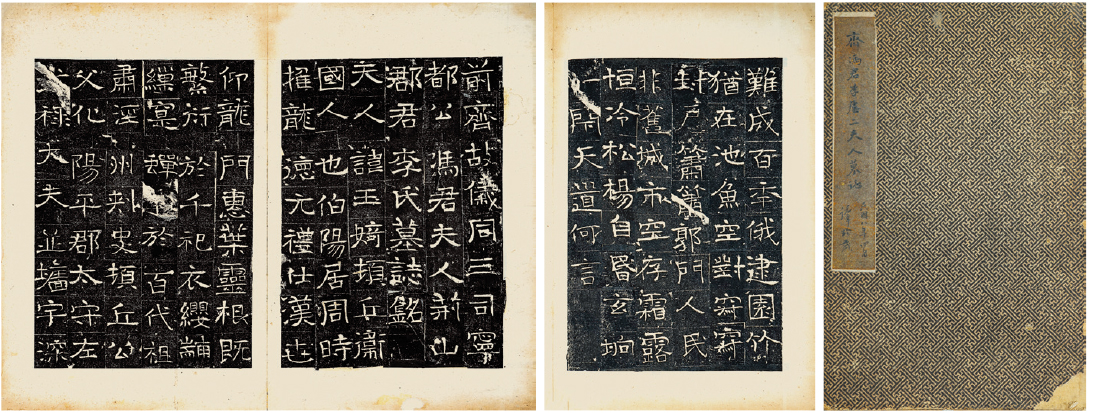 前齊故儀同三司寧
都公馮君夫人荊山
郡君李氏墓誌銘
夫人諱玉婍頓丘衛
國人也伯陽居周時
擢龍德元禮仕漢世
仰龍門惠葉靈根既
繁衍於千祀衣纓黼
纁寔輝於百代祖
肅涇州刾史頓丘公
父化陽平郡太守左
祿大夫並墻宇深
難成百年俄逮園竹
猶在池魚空對寂寂
封戶簫簫郭門人民
非舊城市空存霜露
恒冷松楊自昏玄埛
一閉天道何言
齊馮君李盧二夫人墓誌